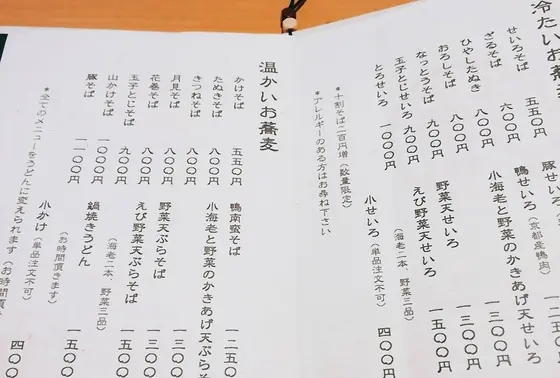 冷たいお蕎麦
せいろそば 五五〇円
ざるそば 六〇〇円
ひやしたぬき 八〇〇円
おろしそば 八〇〇円
なっとうそば 九〇〇円
玉子とじせいろ 九〇〇円
とろせいろ 一〇〇〇円
豚せいろ 一二五
鴨せいろ（京都産鴨肉）
小海老と野菜のかきあげ天せいろ 一三〇
野菜天せいろ 一三〇〇
えび野菜天せいろ 一五〇〇
（海老二本、野菜三品）
小せいろ（単品注文不可） 四〇〇円
＊十割そば二百円増（数量限定）
＊アレルギーのある方はお尋ね下さい
温かいお蕎麦
かけそば 五五〇円
たぬきそば 八〇〇円
きつねそば 八〇〇円
月見そば 八〇〇円
花巻そば 八〇〇円
玉子とじそば 九〇〇円
山かけそば 一〇〇〇円
豚そば 一一〇〇円
鴨南蛮そば 一二五〇
小海老と野菜のかきあげ天ぷらそ
野菜天ぷらそば 一三〇〇
えび野菜天ぷらそば 一五〇〇
（海老二本、野菜三品）
鍋焼きうどん 一五〇〇
（お時間頂きます）
小かけ（単品注文不可） 四〇〇
＊全てのメニューをうどんに変えられます（お時間頂